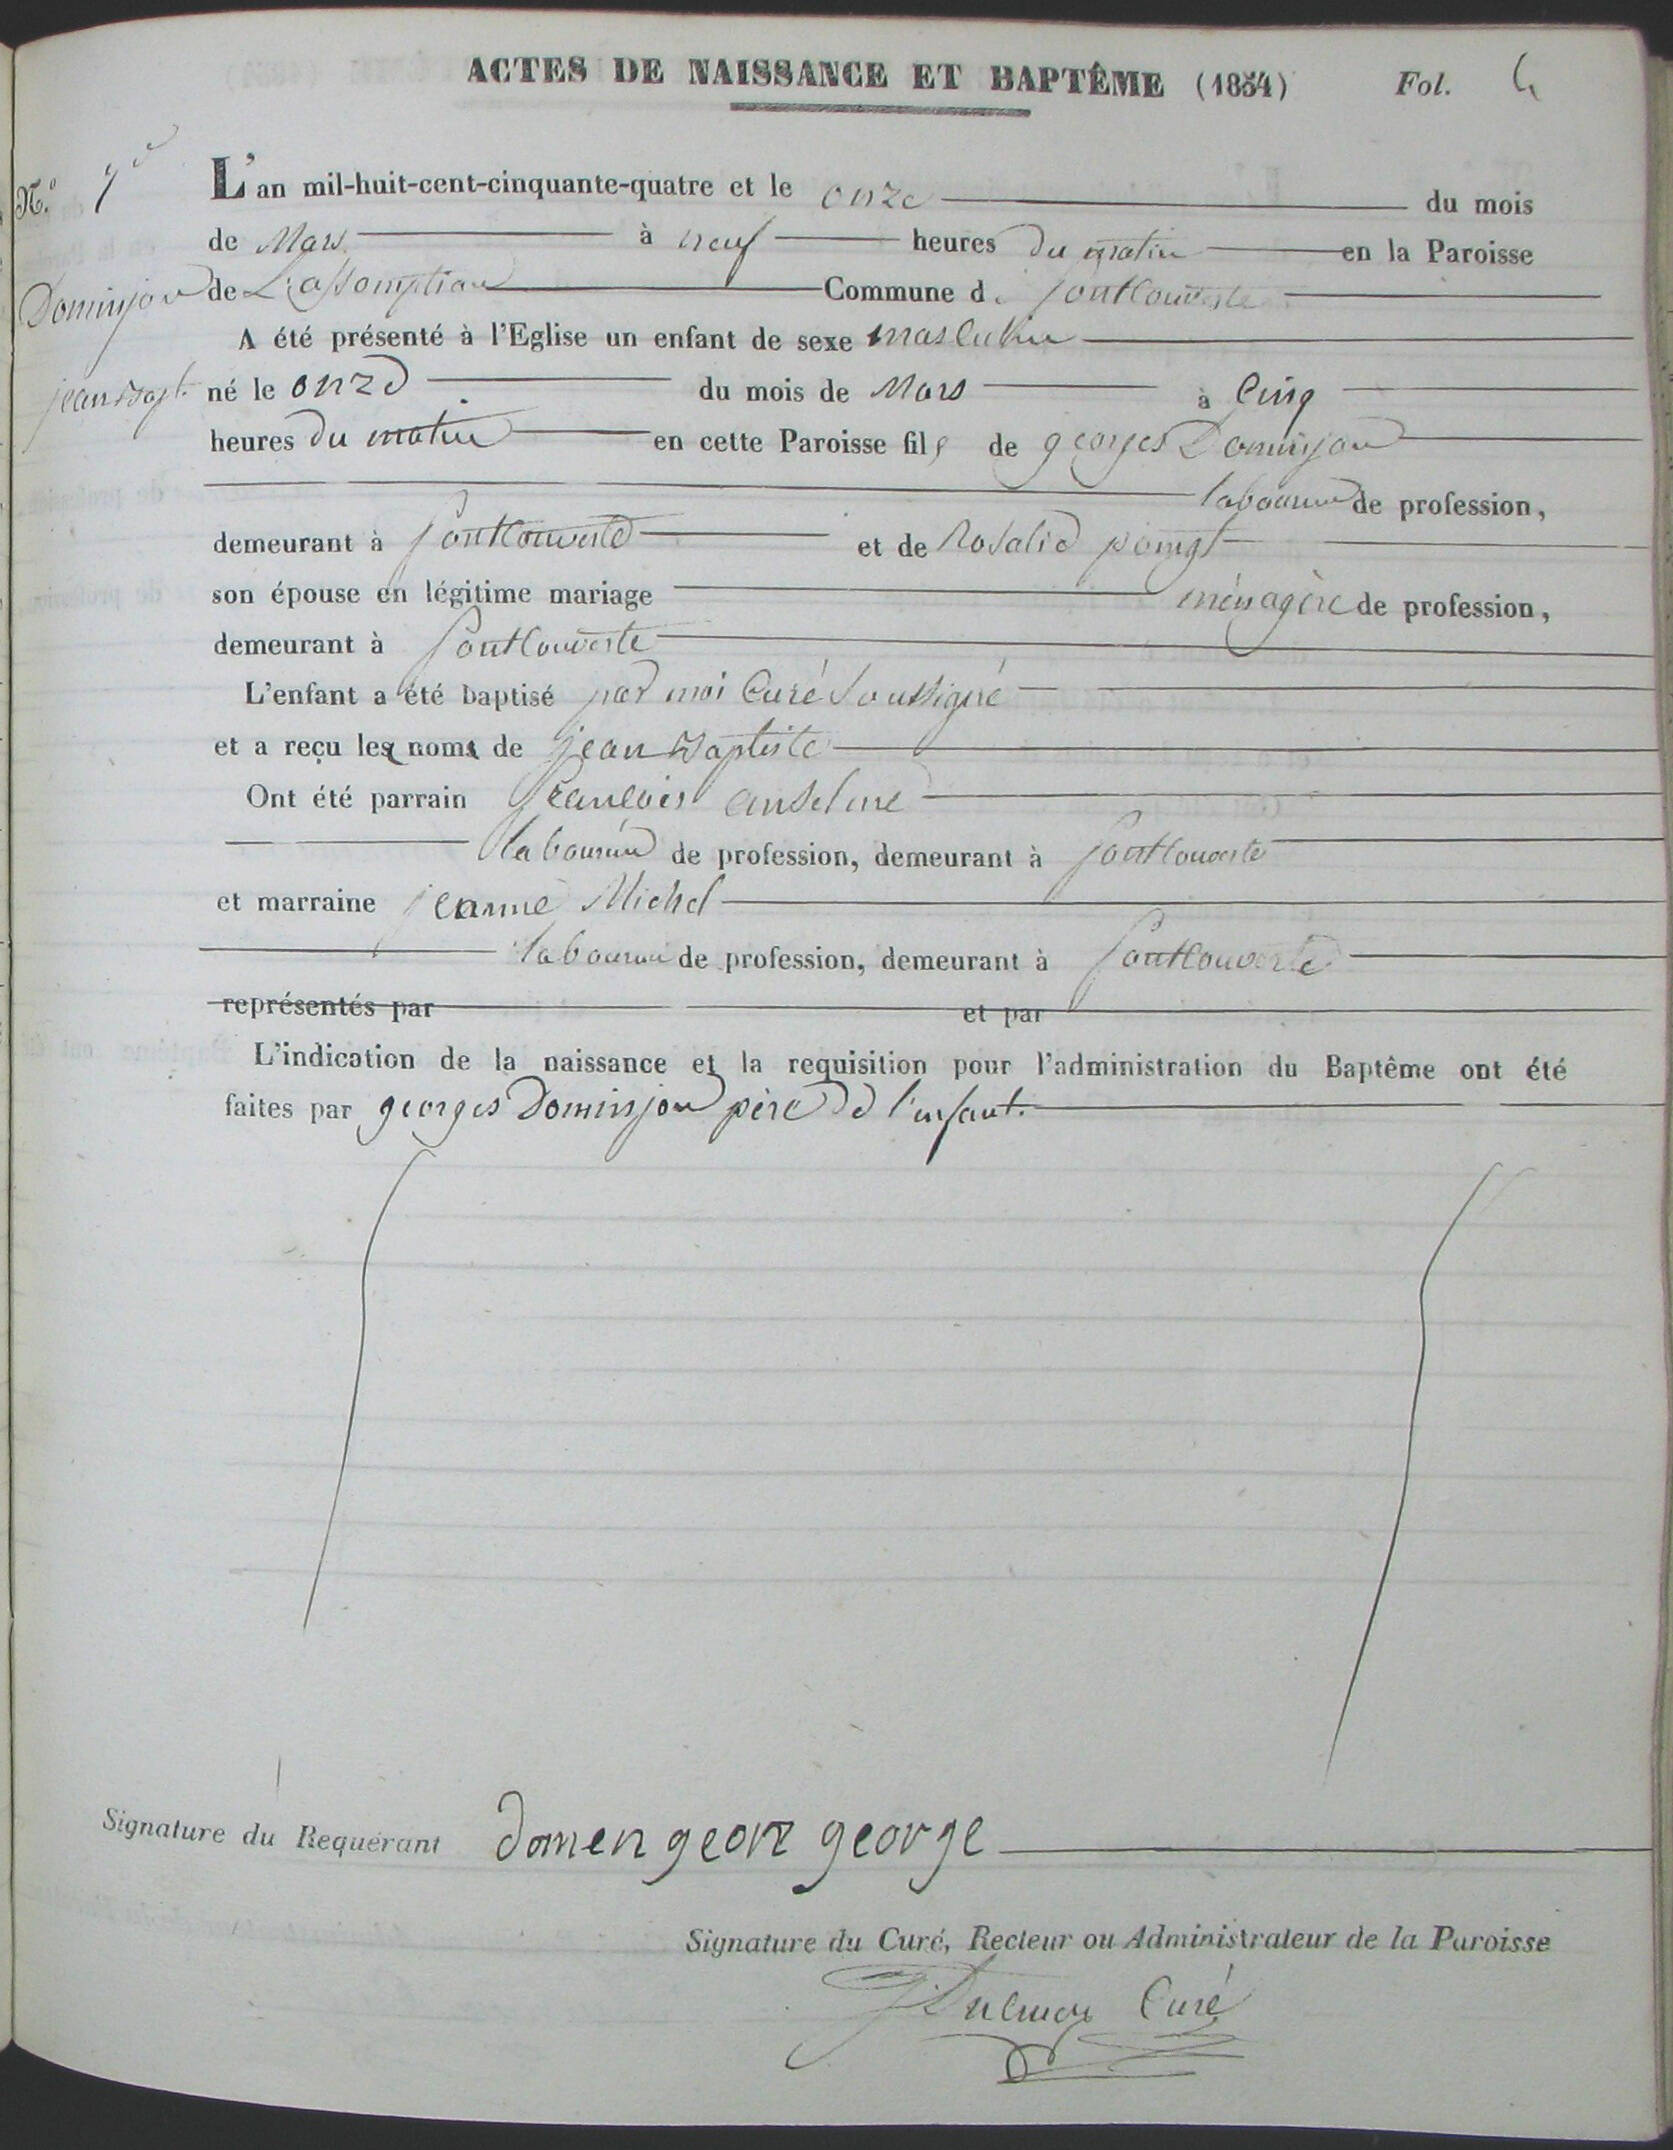 ACTES DE NAISSANCE ET BAPTÊME (1854) Fol. 4
N.º 7e
Dominjon
jean Bapt.
L'an mil-huit-cent-cinquante-quatre et le onze du mois
de Mars à neuf heures du matin en la Paroisse
de L'assomption Commune de fontcouverte
A été présenté à l'Eglise un enfant de sexe masculin
né le onze du mois de Mars à cinq
heures du matin en cette Paroisse fils de georges Dominjon
laboureur de profession,
demeurant à fontcouverte et de Rosalie
son épouse en légitime mariage ménagère de profession,
demeurant à fontcouverte
L'enfant a été baptisé par moi Curé soussigné
et a reçu les noms de jean Baptiste
Ont été parrain françois anselme
laboureur de profession, demeurant à fontcouverte
et marraine jeanne Michel
de profession, demeurant à fontcouverte
représentés par et par
L'indication de la naissance et la requisition pour l'administration du Baptême ont été
faites par georges Dominjon père de l'enfant.
Signature du Requérant domen geon george
Signature du Curé, Recteur ou Administrateur de la Paroisse
Curé